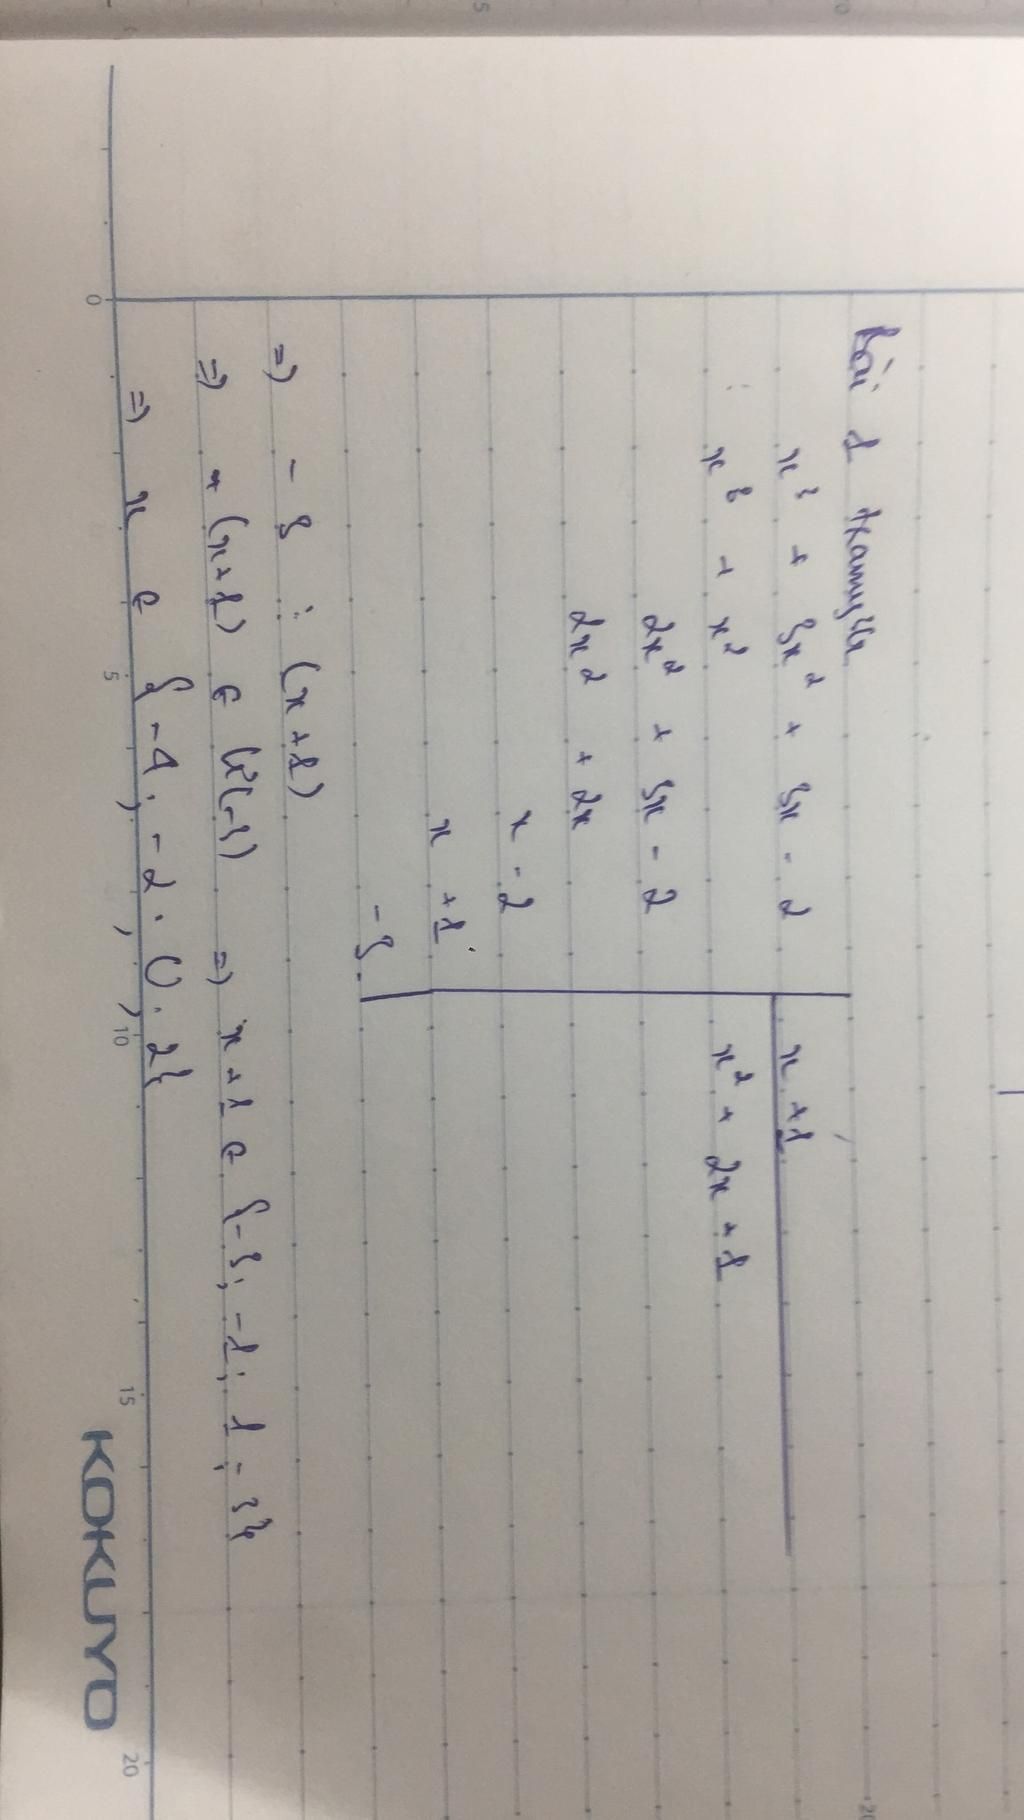 Bài 1
x³ + 3x² + 3x - 2 | x + 1
x³ + x² | x² + 2x + 1
2x² + 3x - 2
2x² + 2x
x - 2
x + 1
-3
=) -3 ⋮ (x+1)
=) (x+1) ∈ Ư(-3) =) x+1 ∈ {-3; -1; 1; 3}
=) x ∈ {-4; -2; 0; 2}
0
5
10
15
20
KOKUYO